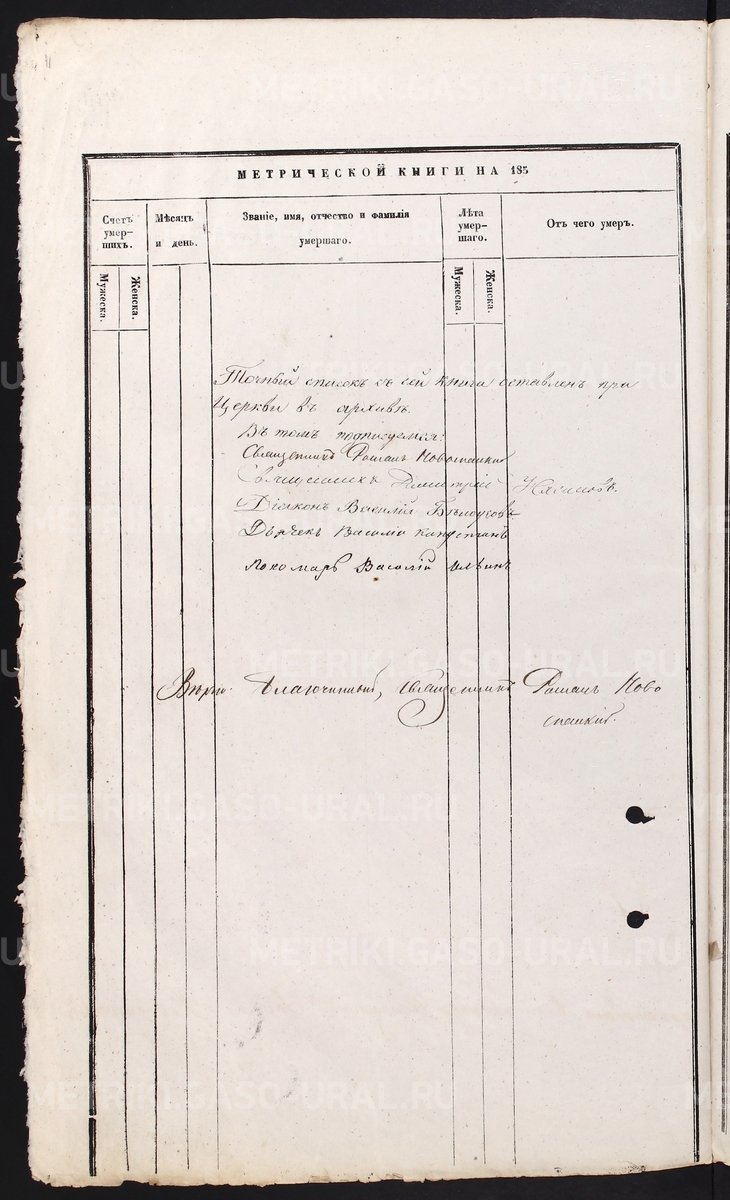 МЕТРИЧЕСКОЙ КНИГИ НА 185
Счетъ умер-шихъ.
Мѣсяцъ и день.
Званіе, имя, отчество и фамилія умершаго.
Лѣта умер-шаго.
Отъ чего умеръ.
Мужеска.
Женска.
Мужеска.
Женска.
Точный списокъ съ сей книги оставленъ при
Церкви въ архивѣ.
Въ томъ подписуемся:
Священникъ Романъ Новоспаскій
Священникъ Димитрій
Діаконъ Василій Бѣлоусовъ
Дьячекъ Василій
Пономарь Василій Ильинъ
Вѣрно. Благочинный, священникъ Романъ Ново
спаскій.
METRIKI.GASO-URAL.RU